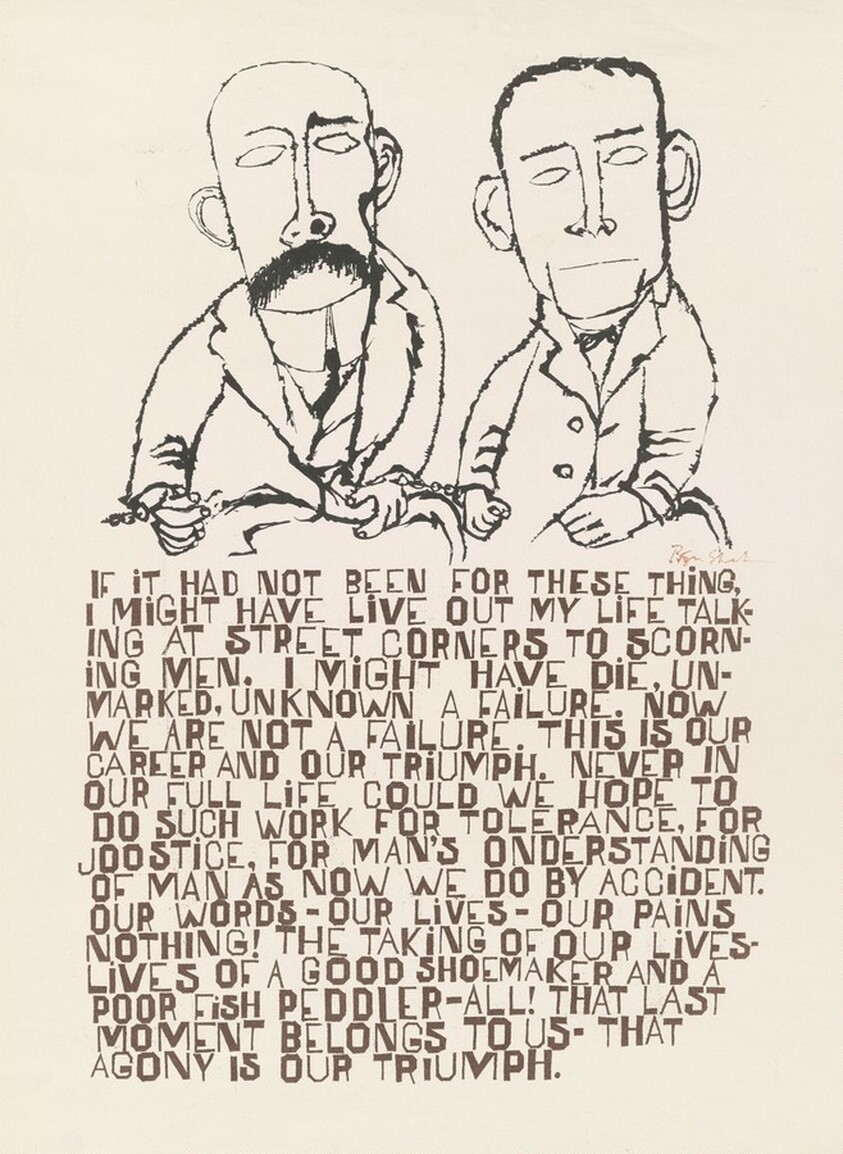 Ben Shahn
IF iT HAD NOT BEEN FOR THESE THiNG,
I MiGHT HAVE LiVE OUT MY LiFE TALK-
ING AT STREET CORNERS TO SCORN-
iNG MEN. I MiGHT HAVE DiE, UN-
MARKED, UNKNOWN A FAiLURE. NOW
WE ARE NOT A FAiLURE. THiS iS OUR
CAREER AND OUR TRiUMPH. NEVER IN
OUR FULL LiFE COULD WE HOPE TO
DO SUCH WORK FOR TOLERANCE, FOR
JOOSTiCE, FOR MAN'S ONDERSTANDiNG
OF MAN AS NOW WE DO BY ACCiDENT.
OUR WORDS - OUR LiVES - OUR PAiNS
NOTHiNG! THE TAKiNG OF OUR LiVES-
LiVES OF A GOOD SHOEMAKER AND A
POOR FiSH PEDDLER - ALL! THAT LAST
MOMENT BELONGS TO US - THAT
AGONY iS OUR TRiUMPH.